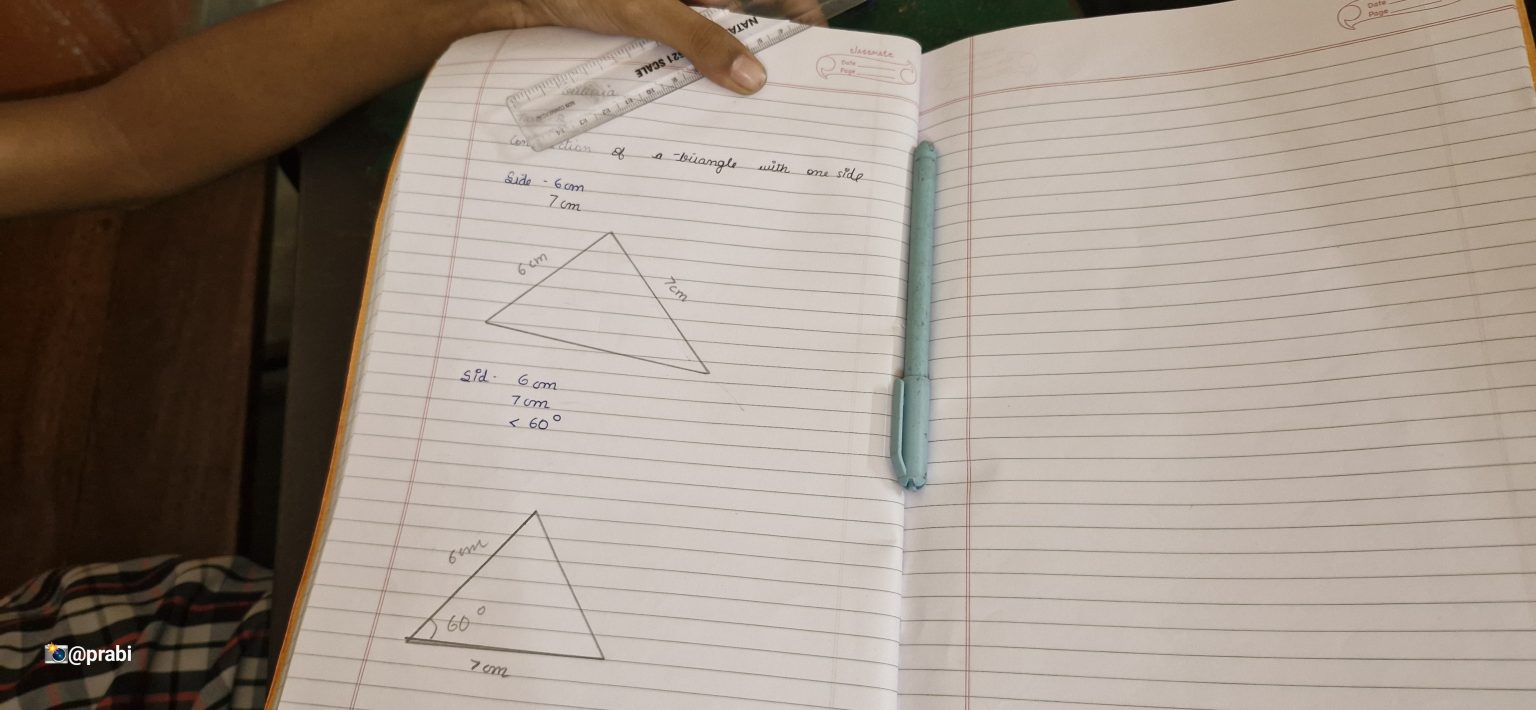 classmate
Date
Page
Date
Page
SCALE
of a triangle with one side
Side - 6 cm
7 cm
6 cm
7 cm
Sid - 6 cm
7 cm
< 60°
6 cm
60°
7 cm
@prabi